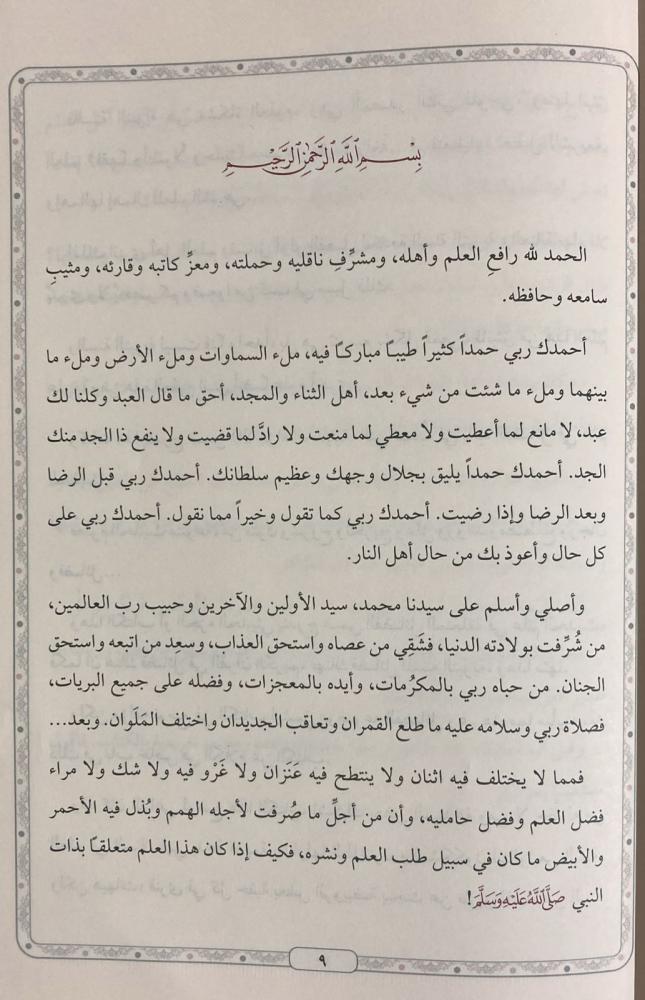 بِسْمِ ٱللَّهِ ٱلرَّحْمَٰنِ ٱلرَّحِيمِ
الحمد لله رافعِ العلم وأهله، ومشرِّفِ ناقليه وحملته، ومعزِّ كاتبه وقارئه، ومثيبِ
سامعه وحافظه.
أحمدك ربي حمداً كثيراً طيبًا مباركًا فيه، ملء السماوات وملء الأرض وملء ما
بينهما وملء ما شئت من شيء بعد، أهل الثناء والمجد، أحق ما قال العبد وكلنا لك
عبد، لا مانع لما أعطيت ولا معطي لما منعت ولا رادَّ لما قضيت ولا ينفع ذا الجد منك
الجد. أحمدك حمداً يليق بجلال وجهك وعظيم سلطانك. أحمدك ربي قبل الرضا
وبعد الرضا وإذا رضيت. أحمدك ربي كما تقول وخيراً مما نقول. أحمدك ربي على
كل حال وأعوذ بك من حال أهل النار.
وأصلي وأسلم على سيدنا محمد، سيد الأولين والآخرين وحبيب رب العالمين،
من شُرِّفت بولادته الدنيا، فشَقِي من عصاه واستحق العذاب، وسعِد من اتبعه واستحق
الجنان. من حباه ربي بالمكرُمات، وأيده بالمعجزات، وفضله على جميع البريات،
فصلاة ربي وسلامه عليه ما طلع القمران وتعاقب الجديدان واختلف المَلَوان. وبعد...
فمما لا يختلف فيه اثنان ولا ينتطح فيه عَنَزان ولا غَرْو فيه ولا شك ولا مراء
فضل العلم وفضل حامليه، وأن من أجلِّ ما صُرفت لأجله الهمم وبُذل فيه الأحمر
والأبيض ما كان في سبيل طلب العلم ونشره، فكيف إذا كان هذا العلم متعلقًا بذات
النبي صَلَّى ٱللَّهُ عَلَيْهِ وَسَلَّمَ!
٩